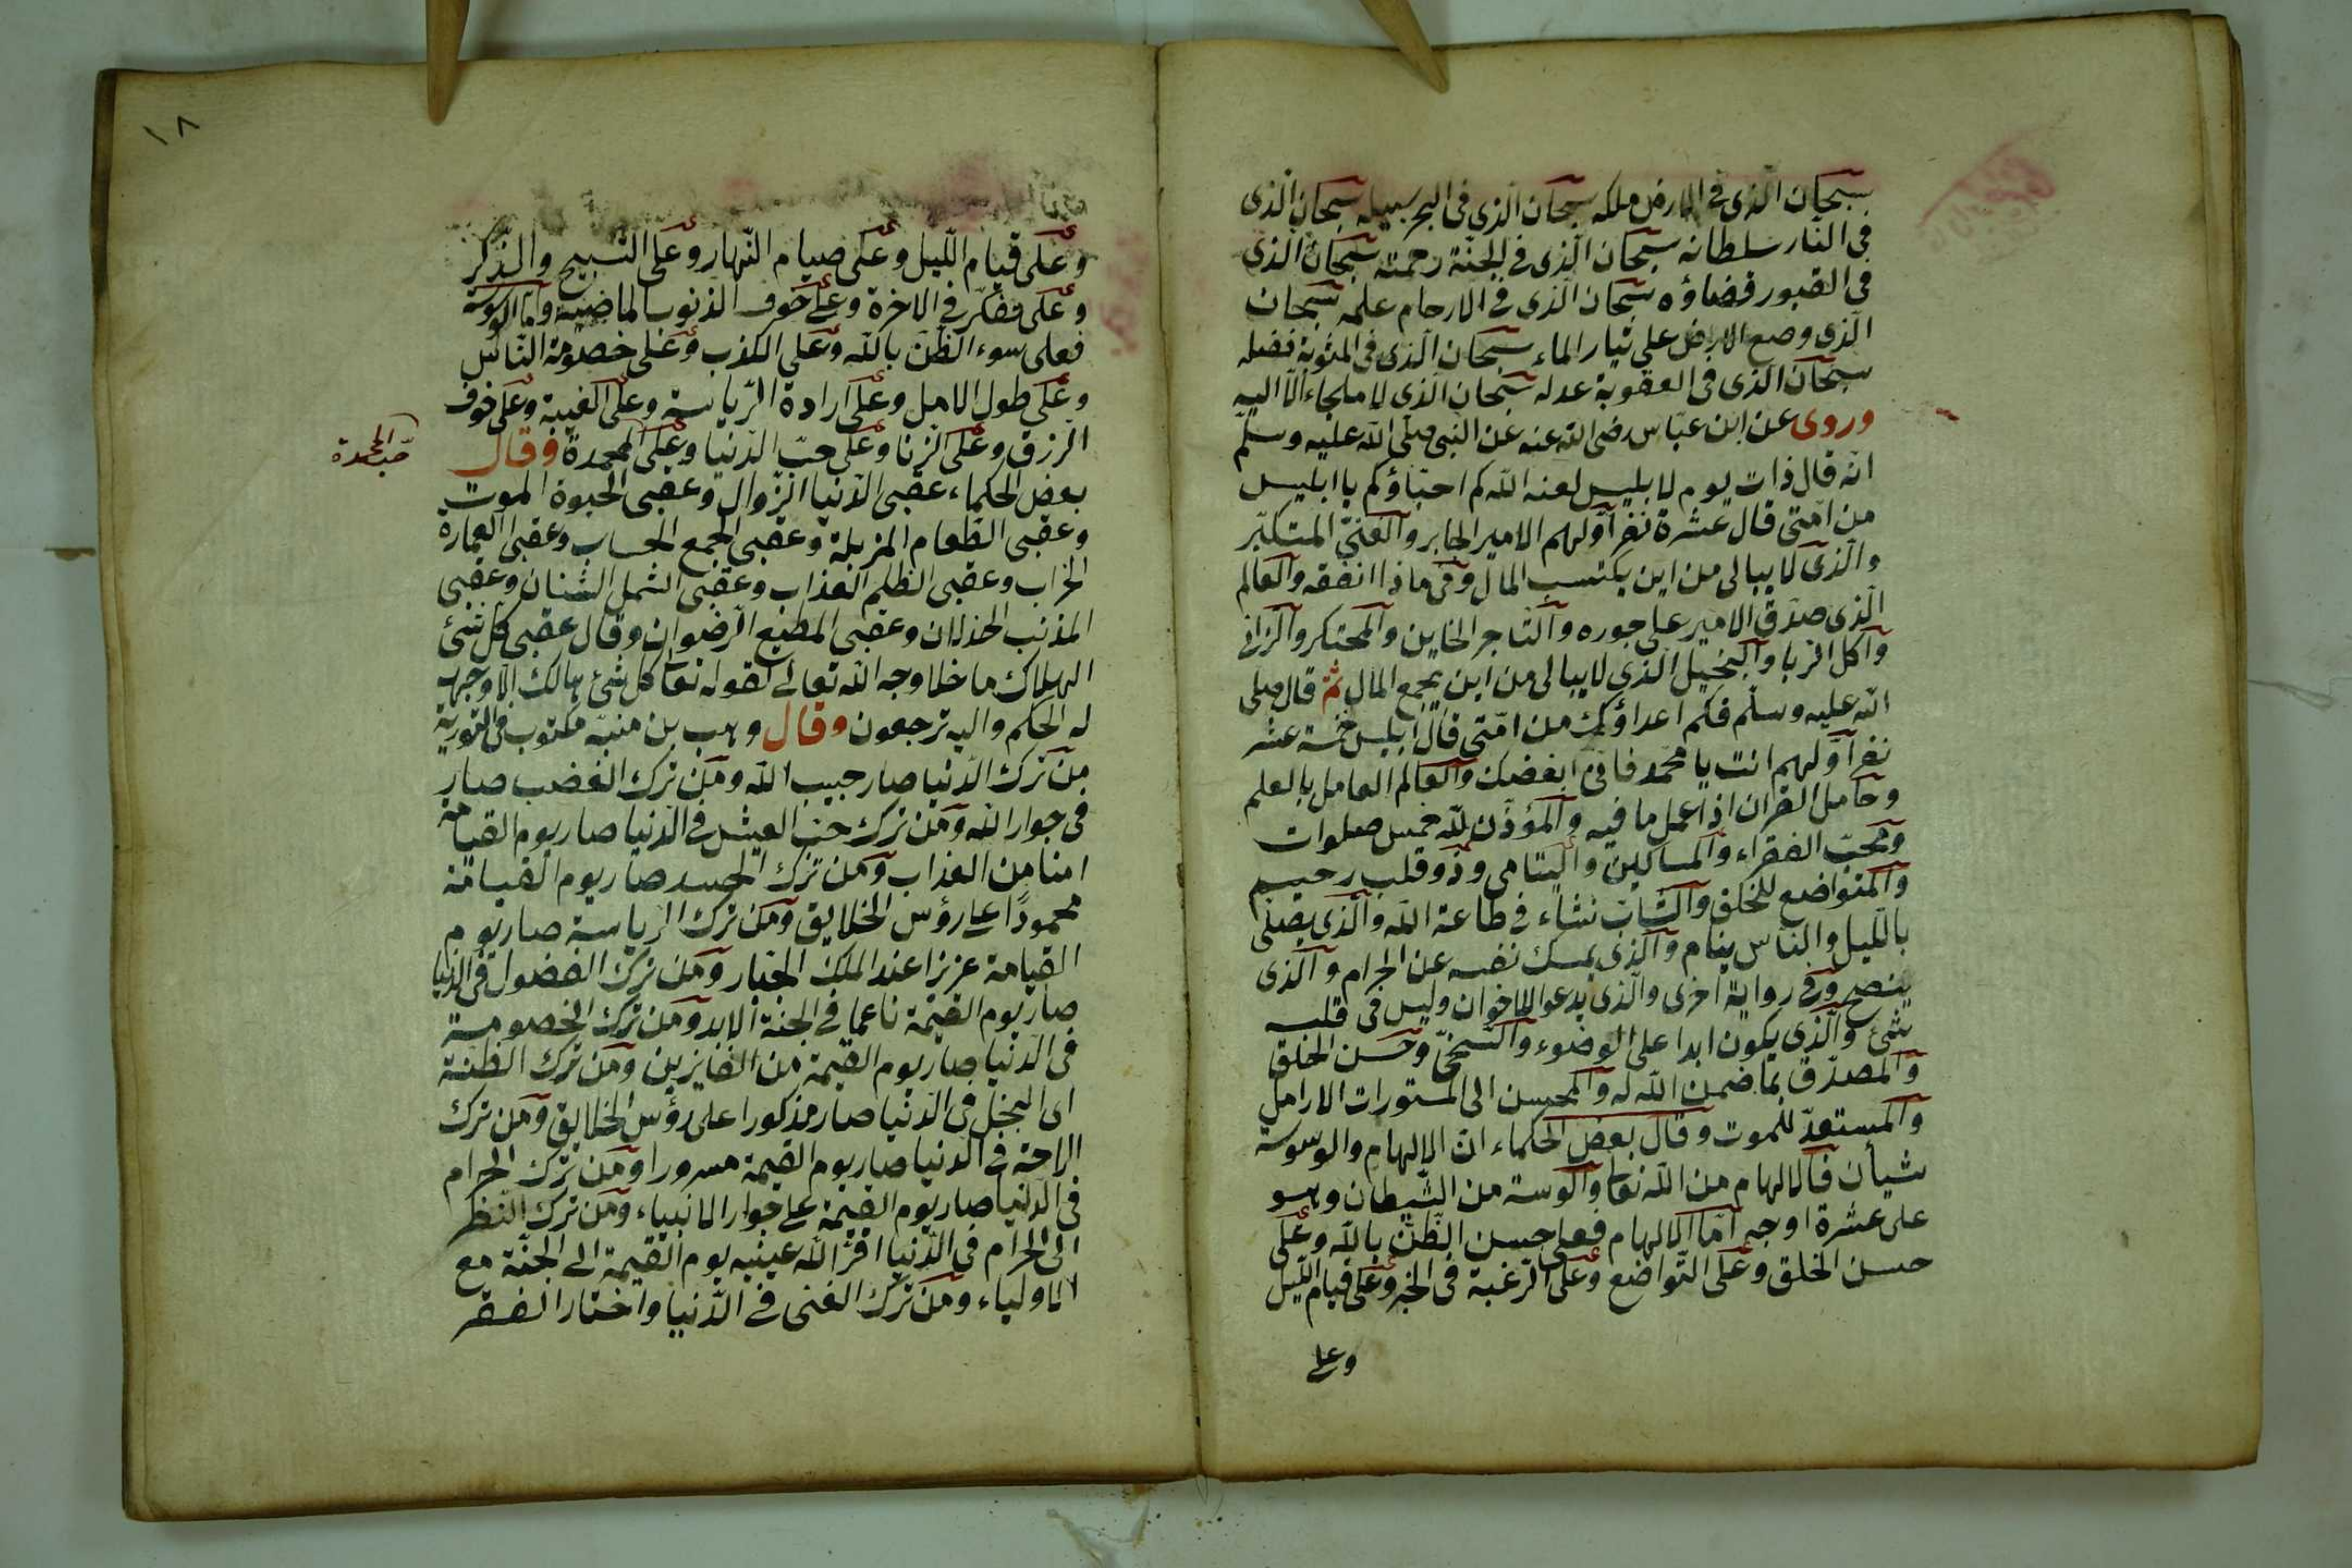 سبحان الذى فى الارض ملكه سبحان الذى فى البحر سبيله سبحان الذى
فى النار سلطانه سبحان الذى فى الجنة رحمته سبحان الذى
فى القبور قضاؤه سبحان الذى فى الارحام علمه سبحان
الذى وضع الارض على تيار الماء سبحان الذى فى المثوبة فضله
سبحان الذى فى العقوبة عدله سبحان الذى لا ملجاء الا اليه
وروى عن ابن عباس رضى الله عنه عن النبى صلى الله عليه وسلم
انه قال ذات يوم لابليس لعنه الله كم احباؤكم يا ابليس
من امتى قال عشرة نفر اولهم الامير الجابر والغنى المتكبر
والذى لا يبالى من اين يكتسب المال وفى ماذا انفقه والعالم
الذى صدق الامير على جوره والتاجر الخاين والمحتكر والزانى
واكل الربا والبخيل الذى لا يبالى من اين يجمع المال ثم قال صلى
الله عليه وسلم فكم اعداؤك من امتى قال ابليس خمسة عشر
نفر اولهم انت يا محمد فانى ابغضك والعالم العامل بالعلم
وحامل القران اذا عمل ما فيه والمؤذن لله خمس صلوات
ومحب الفقراء والمساكين واليتامى وذو قلب رحيم
والمتواضع للخلق والشاب نشاء فى طاعة الله والذى يصلى
بالليل والناس ينام والذى يمسك نفسه عن الحرام والذى
ينصح وفى رواية اخرى والذى يدعو للاخوان وليس فى قلبه
شئ والذى يكون ابدا على الوضوء والسخى وحسن الخلق
والمصدق بما ضمن الله له والمحسن الى المستورات الارامل
والمستعد للموت وقال بعض الحكماء ان الالهام والوسوسة
شيأن فالالهام من الله تعا والوسة من الشيطان وهو
على عشرة اوجه اما الالهام فعلى حسن الظن بالله وعلى
حسن الخلق وعلى التواضع وعلى الرغبة فى الخير وعلى قيام الليل
وعلى
١٨
وعلى قيام الليل وعلى صيام النهار وعلى التسبيح والذكر
وعلى تفكر فى الاخرة وعلى خوف الذنوب الماضية واما الوسوسة
فعلى سوء الظن بالله وعلى الكذب وعلى خصومة الناس
وعلى طول الامل وعلى ارادة الرياسة وعلى الغيبة وعلى خوف
الرزق وعلى الزنا وعلى حب الدنيا وعلى المحمدة وقال
حب المحمدة
بعض الحكماء عقبى الدنيا الزوال وعقبى الحيوة الموت
وعقبى الطعام المزبلة وعقبى الجمع الحساب وعقبى العمارة
الخراب وعقبى الظلم العذاب وعقبى الشمل الشتان وعقبى
المذنب الخذلان وعقبى المطيع الرضوان وقال عقبى كل شئ
الهلاك ما خلا وجه الله تعالى لقوله تعا كل شئ هالك الا وجهه
له الحكم واليه ترجعون وقال وهب بن منبه مكتوب فى التورية
من ترك الدنيا صار حبيب الله ومن ترك الغضب صار
فى جوار الله ومن ترك حب العيش فى الدنيا صار يوم القيامة
امنا من العذاب ومن ترك الحسد صار يوم القيامة
محمودا على رؤس الخلايق ومن ترك الرياسة صار يوم
القيامة عزيزا عند الملك الجبار ومن ترك الفضول فى الدنيا
صار يوم القيمة ناعما فى الجنة الابد ومن ترك الخصومة
فى الدنيا صار يوم القيمة من الفايزين ومن ترك الظنة
اى البخل فى الدنيا صار مذكورا على رؤس الخلايق ومن ترك
الراحة فى الدنيا صار يوم القيمة مسرورا ومن ترك الحرام
فى الدنيا صار يوم القيمة على جوار الانبياء ومن ترك النظر
الى الحرام فى الدنيا اقر الله عينيه يوم القيمة الى الجنة مع
الاولياء ومن ترك الغنى فى الدنيا واختار الفقر